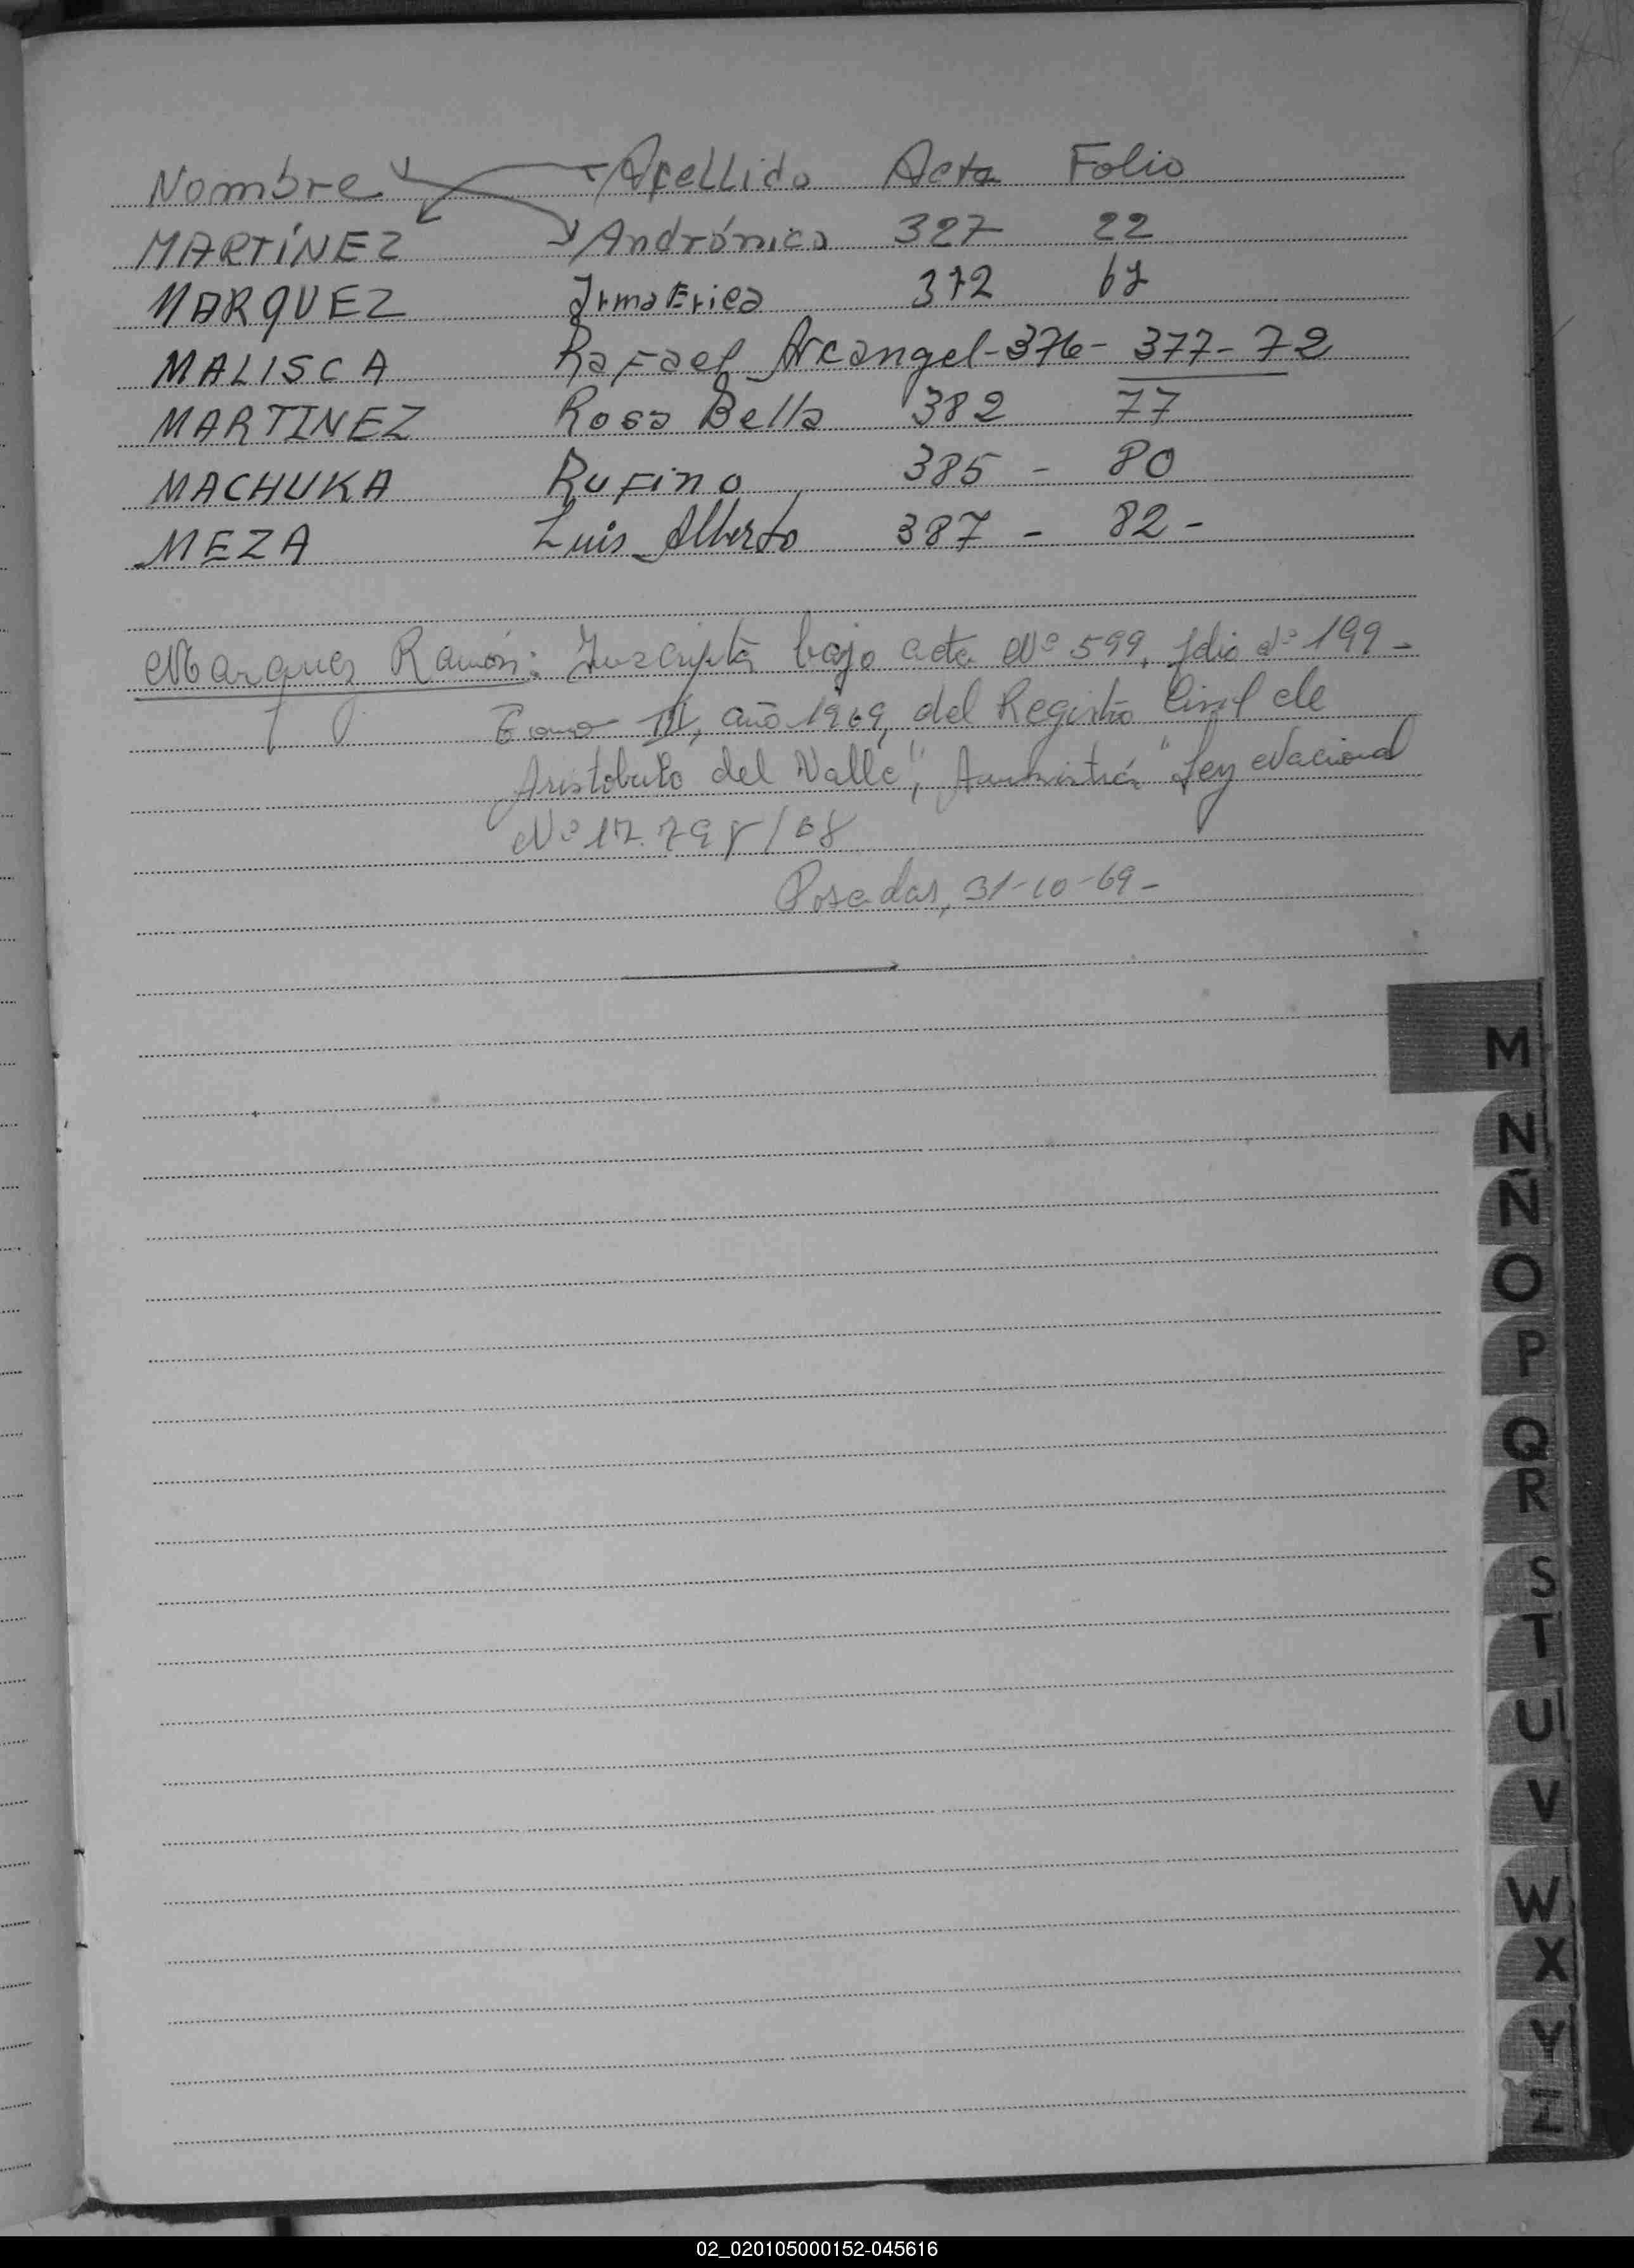 Nombre Apellido Acta Folio
MARTÍNEZ Andrónico 327 22
MARQUEZ Irma Erica 372 67
MALISCA Rafael Arcangel - 376 - 377 - 72
MARTINEZ Rosa Bella 382 77
MACHUKA Rufino 385 - 80
MEZA Luis Alberto 387 - 82 -
Marquez Ramón: Inscripta bajo acta Nº 599, folio Nº 199 -
Tomo III, año 1969, del Registro Civil de
Aristobulo del Valle", "Ley Nacional
Nº 17.798/68
Posadas, 31-10-69 -
M
N
Ñ
O
P
Q
R
S
T
U
V
W
X
Y
Z
02_020105000152-045616